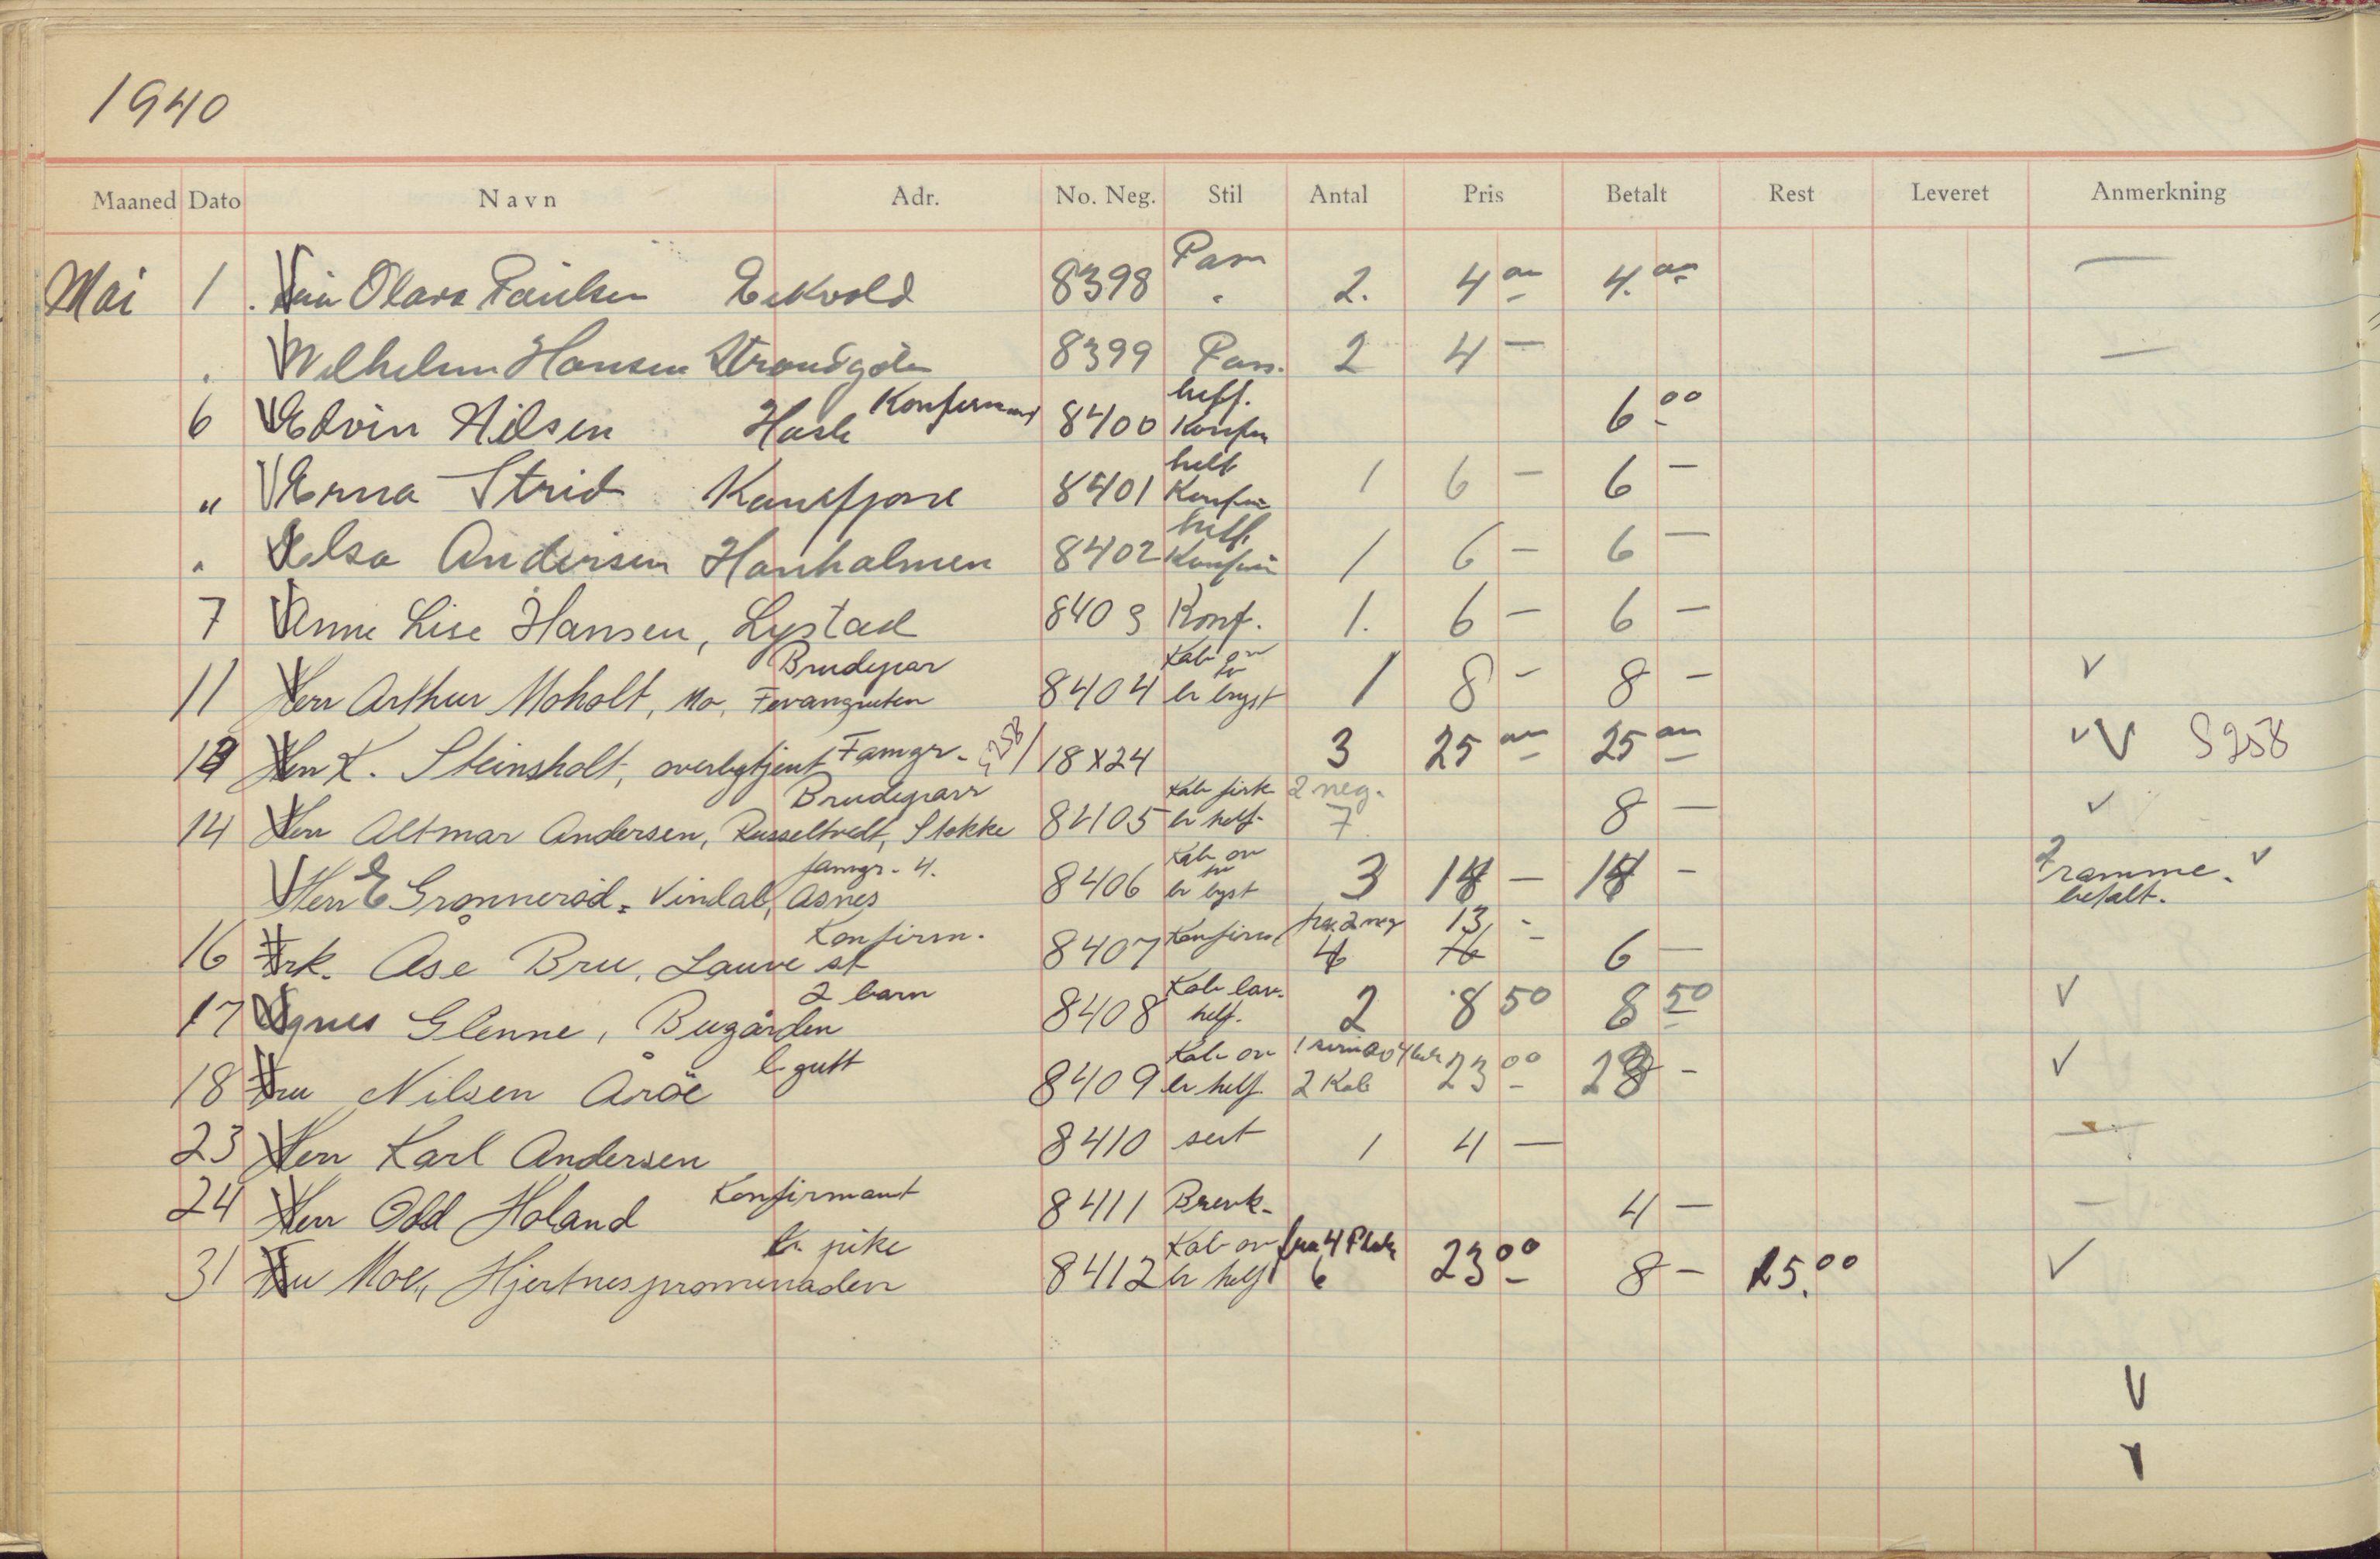 1940
Maaned Dato Navn Adr. No. Neg. Stil Antal Pris Betalt Rest Leveret Anmerkning
Pass
Mai 1 Olava Paulsen Eekvold 8398 " 2. 4 00 4.00 —
" Wilhelm Hansen 8399 Pass. 2 4 — —
Konfirmant helf.
6 Edvin Nilsen Hasle 8400 Konfir 6 00
helf
" Erna Strid 8401 Konfir 1 6 — 6 —
helf.
" Elsa Andersen Hanholmen 8402 Konfir 1 6 — 6 —
7 Anne Lise Hansen, Lystad 8403 Konf. 1. 6 — 6 —
Brudepar Kab ov
11 Herr Arthur Moholt, Mo, Fevangruten 8404 br bryst 1 8 — 8 — V
Herr K. Steinsholt, overbetjent Famgr. S258 18x24 3 25 00 25 00 V V S258
Brudeparr Kab 2 neg.
14 Herr Altmar Andersen, Russeltvedt, Stokke 8405 br helf. 7 8 — V
famgr. 4. Kab ov
Herr E Grønnerød. Vindal, Åsnes 8406 br byst 3 — — ramme. betalt. V
Konfirm. fra 2 neg 13 —
16 Frk. Åse Bru, Lauve st 8407 Konfirm 6 —
2 barn Kab lav.
17 Agnes Glenne, Bugården 8408 helf. 2 8 50 8 50 V
l. gutt Kab ov
18 Fru Nilsen Årøe 8409 br helf. 2 Kab 23 00 — V
23 Herr Karl Andersen 8410 1 4 —
Konfirmant
24 Herr Odd Holand 8411 Brevk. 4 — —
pike Kab ov fra 4 Plate
31 Fru Moe, Hjertnespromenaden 8412 br helf 6 23 00 8 — 15.00 V
V